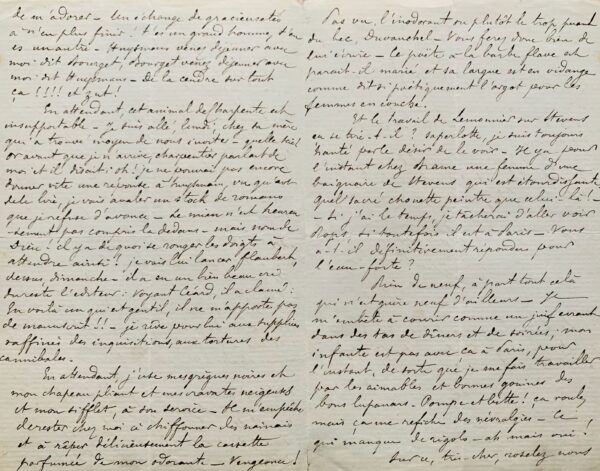 de m'adorer - Un échange de gracieusetés
à n'en plus finir ! t'es un grand homme, d'en
es un autre - Huysmans venez déjeuner avec
moi dit Bourget, Bourget venez déjeuner avec
moi dit Huysmans - De la cendre sur tout
ça !!!! et zut !
En attendant, cet animal de Charpentier est
insupportable - Je suis allé, lundi, chez sa mère
qui a trouvé moyen de nous inviter - quelle
or avant que je n'arrive, charpentier parlant de
moi et il disait : oh ! je ne pourrai pas encore
donner vite une réponse à Huysmans, vu qu'avant
de le lire, je vais avaler un stock de romans
que je refuse d'avance - Le mien n'est heureu-
-sement pas compris là dedans - mais nom de
Dieu ! il y a de quoi se ronger les doigts à
attendre ainsi ! je vais lui lancer flaubert
dessus, dimanche - il a eu un bien beau cri
du reste l'éditeur : Voyant Céard, il a clamé :
En voilà un qui est gentil, il ne m'apporte pas
de manuscrit !! - je rêve pour lui aux supplices
raffinés des inquisitions, aux tortures des
cannibales.
En attendant, j'use mes grègues noires et
mon chapeau pliant et mes cravates neigeuses
et mon sifflet, à son service - Il m'empêche
de rester chez moi à chiffonner des
et à râper délicieusement la cassette
parfumée de mon odorante - Vengeance !
Pas vu, l'inodorant ou plutôt le trop puant
du bec, Duvauchel - Vous ferez donc bien de
lui écrire - Le poète à la barbe flave est
paraît-il marié et sa largue est en vidange
comme dit si poétiquement l'argot pour les
femmes en couche.
Et le travail de Lemonnier sur Stevens
en se tire-t-il ? saperlotte, je suis toujours
hanté par le désir de le voir - Il y a pour
l'instant chez une femme d'une
baignoire de Stevens qui est étourdissante
quel sacré chouette peintre que celui-là !
- Si j'ai le temps, je tâcherai d'aller voir
Rops, si toutefois il est à Paris - Vous
a-t-il définitivement répondu pour
l'eau-forte ?
Rien de neuf, à part tout cela
qui n'est guère neuf d'ailleurs - Je
m'embête à courir comme un juif errant
dans des tas de dîners et de soirées ; mon
infante est pas avec ça à Paris, pour
l'instant, de sorte que je me fais travailler
par les aimables et bonnes gouines des
bons lupanars - Pompe et lutte ! ça roule,
mais ça me refiche des névralgies - Ce
qui manque de rigolo - ah mais oui !
sur ce, très-cher, nous